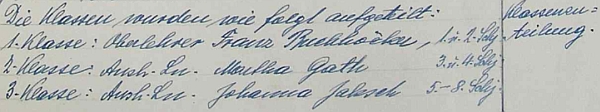 Die Klassen wurden wie folgt aufgeteilt:
1. Klasse: Oberlehrer Franz Buchhöcker, 1. u. 2. Schj.
2. Klasse: Aush. Ln. Martha Gath 3. u. 4. Schj.
3. Klasse: Aush. Ln. Johanna Jaksch 5.-8. Schj.
Klassenein-
teilung.